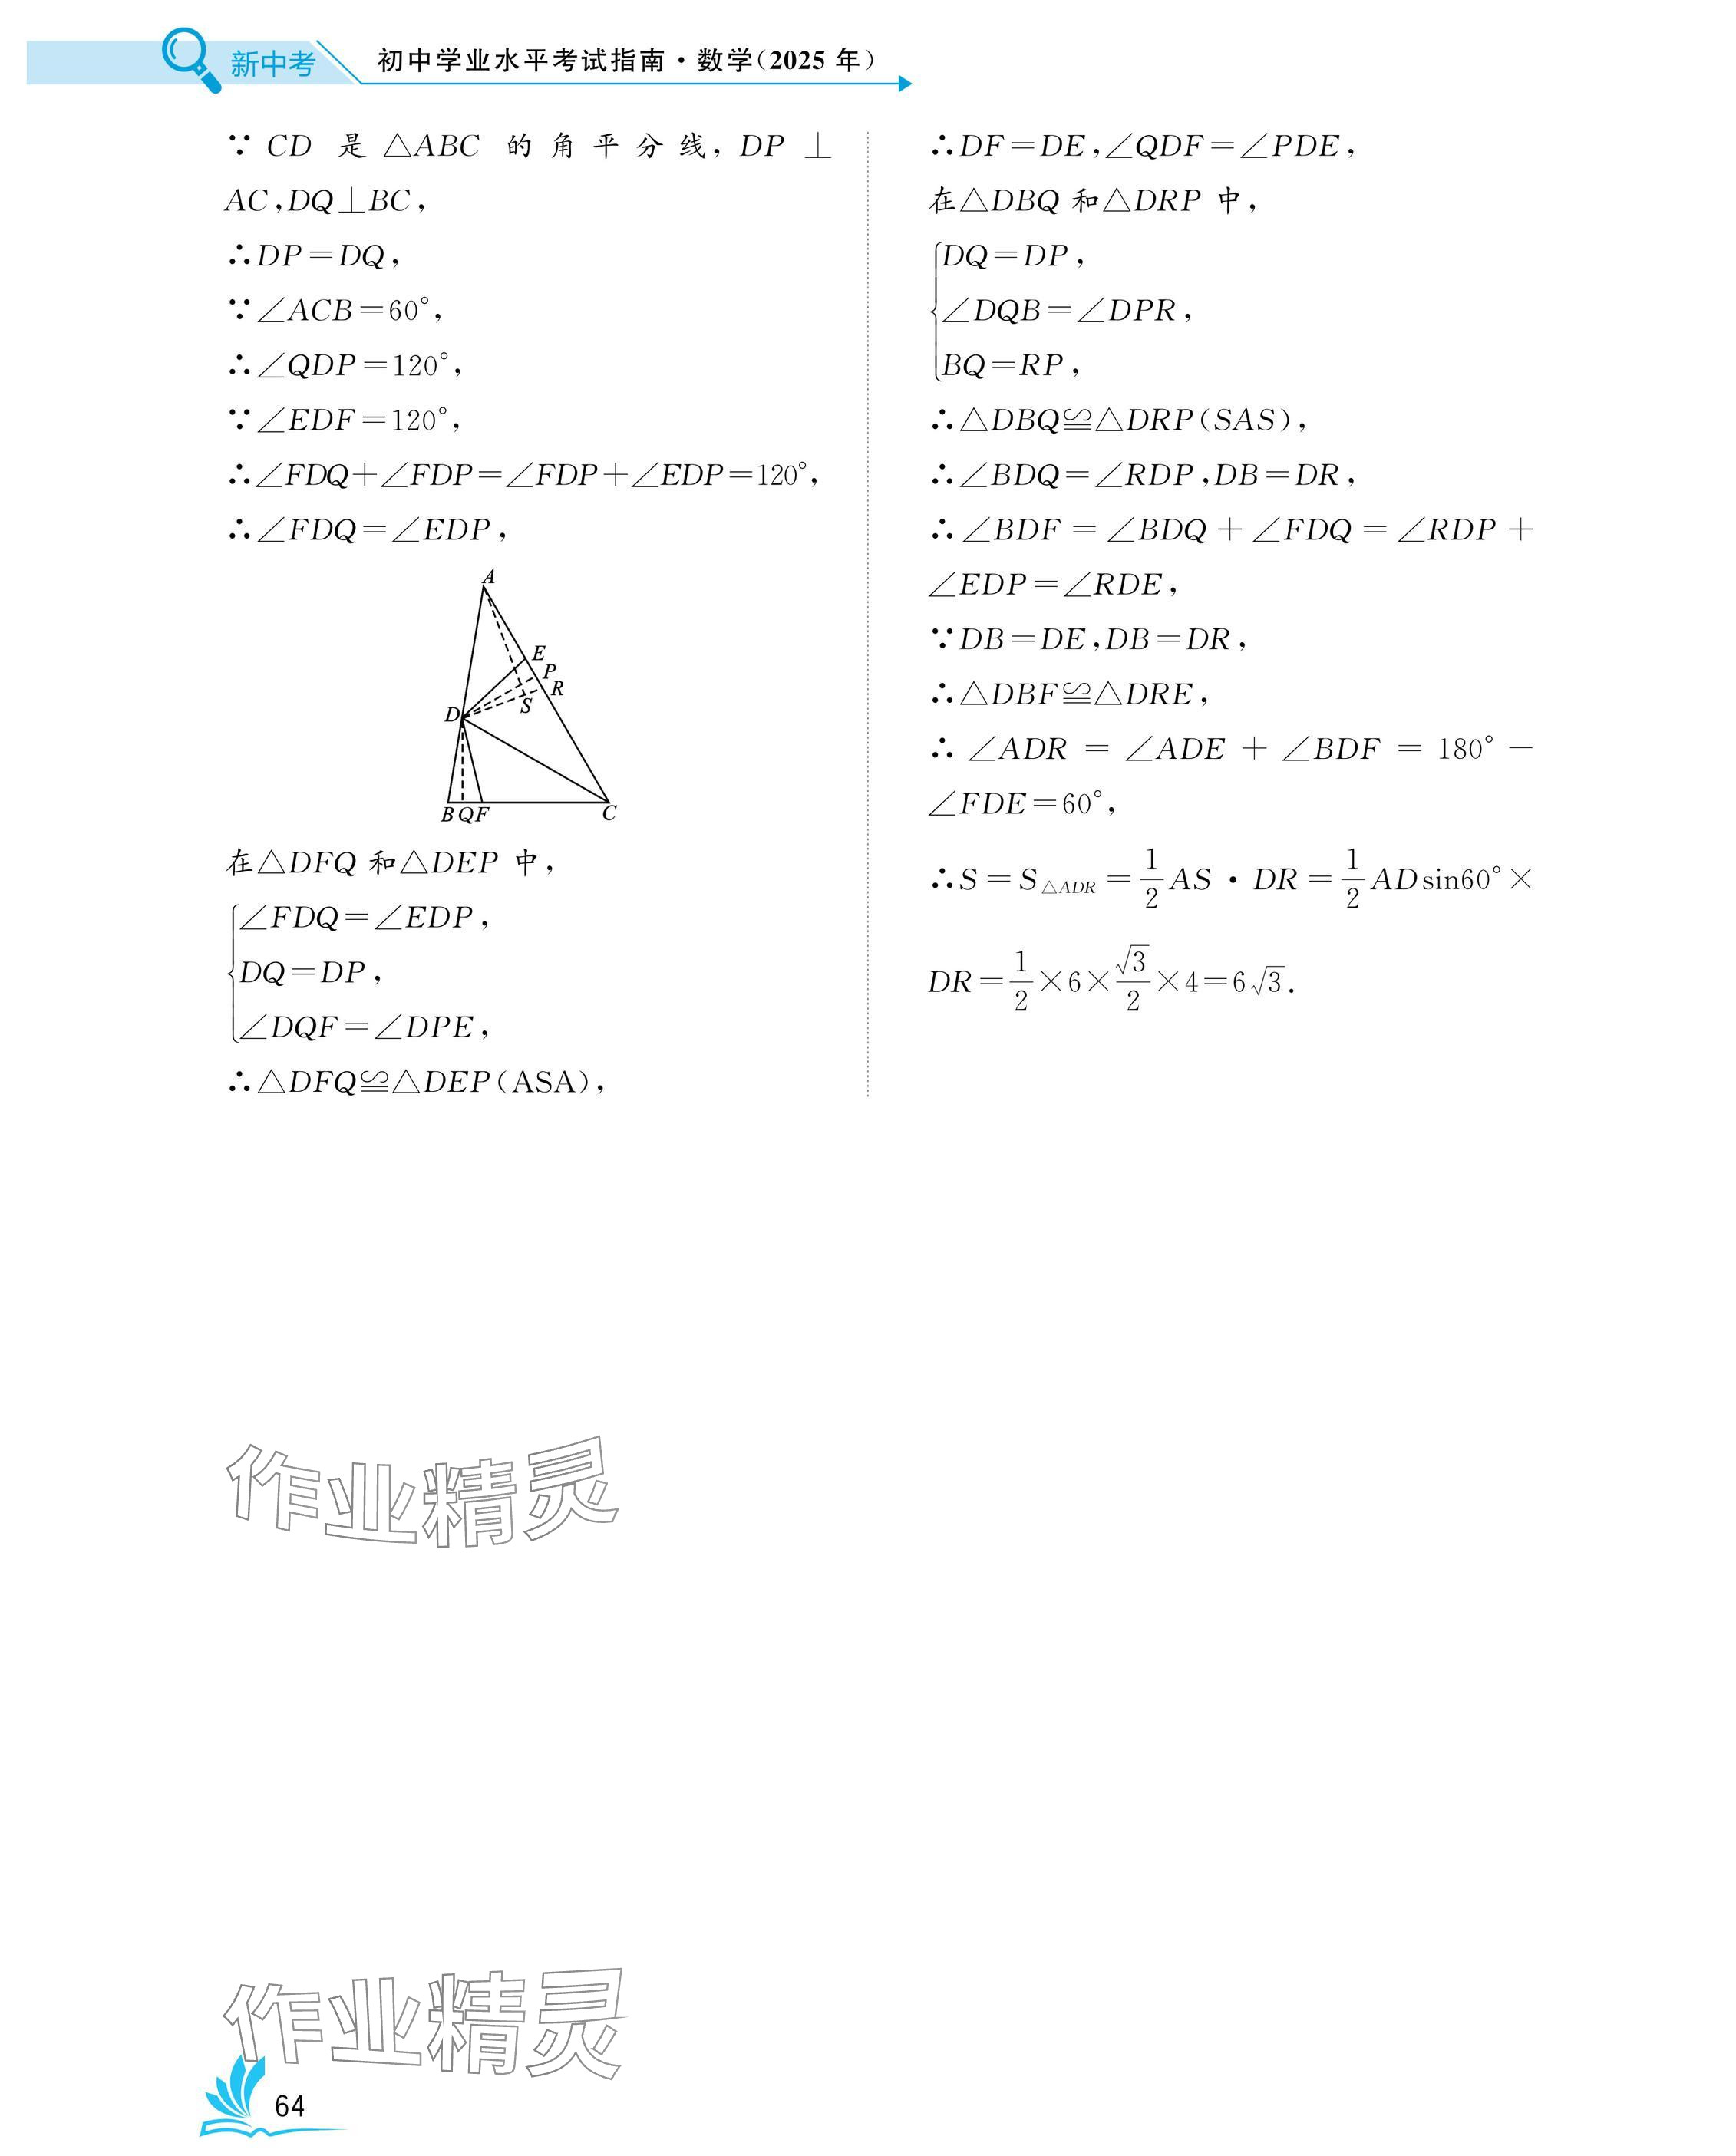 新中考
初中学业水平考试指南·数学(2025 年)
∵ CD 是 △ABC 的 角 平 分 线, DP ⊥
AC,DQ⊥BC,
∴DP=DQ,
∵∠ACB=60°,
∴∠QDP=120°,
∵∠EDF=120°,
∴∠FDQ+∠FDP=∠FDP+∠EDP=120°,
∴∠FDQ=∠EDP,
A
E
P
R
S
D
B Q F C
在△DFQ 和△DEP 中,
∠FDQ=∠EDP,
DQ=DP,
∠DQF=∠DPE,
∴△DFQ≌△DEP(ASA),
∴DF=DE,∠QDF=∠PDE,
在△DBQ 和△DRP 中,
DQ=DP,
∠DQB=∠DPR,
BQ=RP,
∴△DBQ≌△DRP(SAS),
∴∠BDQ=∠RDP,DB=DR,
∴∠BDF=∠BDQ+∠FDQ=∠RDP+
∠EDP=∠RDE,
∵DB=DE,DB=DR,
∴△DBF≌△DRE,
∴∠ADR=∠ADE+∠BDF=180°−
∠FDE=60°,
∴S=S△ADR=1/2 AS·DR=1/2 AD sin60°×
DR=1/2×6×√3/2×4=6√3.
作业精灵
作业精灵
64